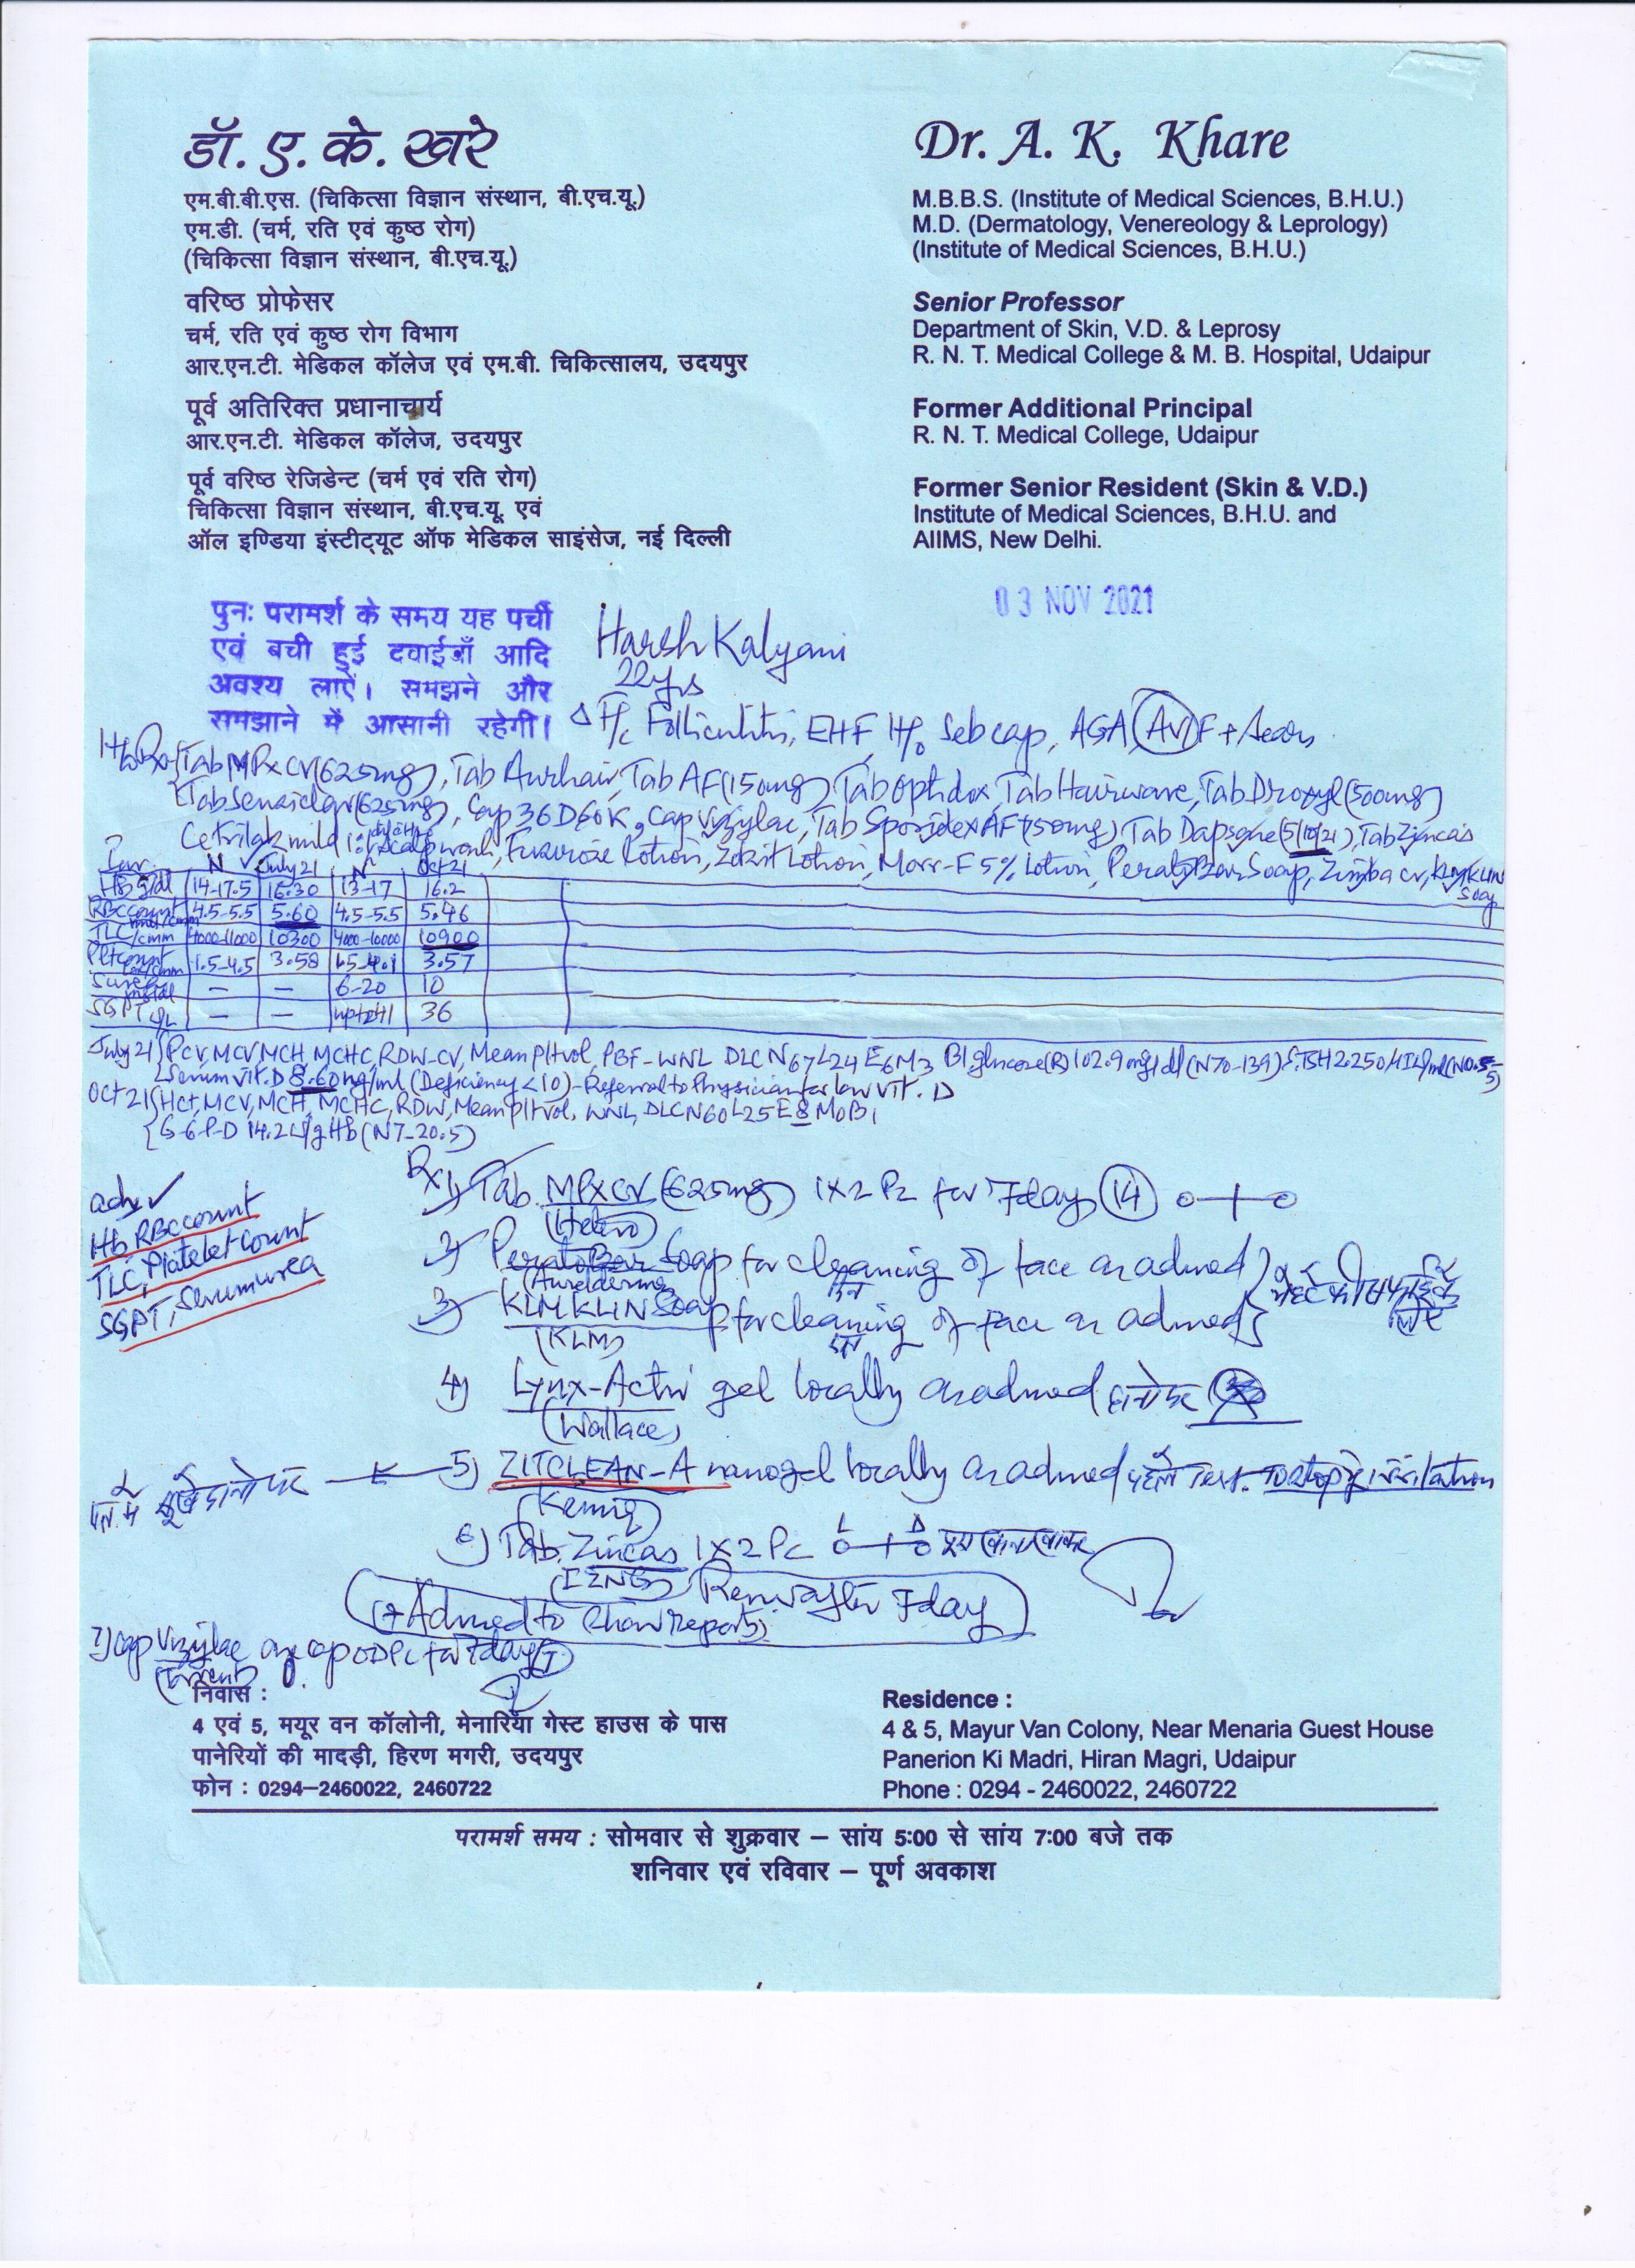 डॉ. ए. के. खरे
एम.बी.बी.एस. (चिकित्सा विज्ञान संस्थान, बी.एच.यू.)
एम.डी. (चर्म, रति एवं कुष्ठ रोग)
(चिकित्सा विज्ञान संस्थान, बी.एच.यू.)
वरिष्ठ प्रोफेसर
चर्म, रति एवं कुष्ठ रोग विभाग
आर.एन.टी. मेडिकल कॉलेज एवं एम.बी. चिकित्सालय, उदयपुर
पूर्व अतिरिक्त प्रधानाचार्य
आर.एन.टी. मेडिकल कॉलेज, उदयपुर
पूर्व वरिष्ठ रेजिडेन्ट (चर्म एवं रति रोग)
चिकित्सा विज्ञान संस्थान, बी.एच.यू. एवं
ऑल इण्डिया इंस्टीट्यूट ऑफ मेडिकल साइंसेज, नई दिल्ली
Dr. A. K. Khare
M.B.B.S. (Institute of Medical Sciences, B.H.U.)
M.D. (Dermatology, Venereology & Leprology)
(Institute of Medical Sciences, B.H.U.)
Senior Professor
Department of Skin, V.D. & Leprosy
R. N. T. Medical College & M. B. Hospital, Udaipur
Former Additional Principal
R. N. T. Medical College, Udaipur
Former Senior Resident (Skin & V.D.)
Institute of Medical Sciences, B.H.U. and
AIIMS, New Delhi.
03 NOV 2021
पुनः परामर्श के समय यह पर्ची
एवं बची हुई दवाईयाँ आदि
अवश्य लाऐं। समझने और
समझाने में आसानी रहेगी।
Harsh Kalyani
22yrs
Δ H/c Folliculitis, EHF, H/o Seb cap, AGA, AV F + Scars
Tab MPXCV (625mg), Tab Aurhair, Tab AF (150mg), Tab Optidox, Tab Hairware, Tab Droxyl (500mg)
Tab Senaiclav (625mg), Cap 36D60K, Cap Vizylac, Tab Sporidex AF (750mg), Tab Dapsone (5/10/21), Tab Zincas
Cetrilak mild scalp wash, Fucuroze Lotion, Lotion, Morr-F 5% Lotion, Perato Bar Soap, cv, KLMKLIN Soap
N July 21 N Oct 21
Hb g/dl 14-17.5 16.30 13-17 16.2
RBC count 4.5-5.5 5.60 4.5-5.5 5.46
TLC/cmm 4000-11000 10300 4000-10000 10900
Plt count 1.5-4.5 3.58 1.5-4.1 3.57
S urea mg/dl — — 6-20 10
SGPT U/L — — upto 41 36
July 21 PCV, MCV, MCH, MCHC, RDW-CV, Mean Plt vol, PBF-WNL DLC N67 L24 E6 M3 Bl glucose (R) 102.9 mg/dl (N70-139) S.TSH 2.250
Serum Vit. D 8.60 ng/ml (Deficiency <10) - Referral to Physician for low Vit. D
Oct 21 Hct, MCV, MCH, MCHC, RDW, Mean plt vol. WNL, DLC N60 L25 E8 M0 B1
G-6-P-D 14.2 U/gHb (N7-20.5)
adv ✓
Hb RBC count
TLC, Platelet Count
SGPT, Serum urea
Rx 1) Tab. MPXCV (625mg) 1x2 Pc for 7days (14)
(Hetero)
2) Perato Bar Soap for cleaning of face as advised
3) KLMKLIN Soap for cleaning of face as advised
(KLM)
4) Lynx-Acti gel locally as advised
(Wallace)
5) ZITCLEAN-A nanogel locally as advised पहले Test. to stop if irritation
6) Tab. Zincas 1x2 Pc
Review after 7day
+ Advised to Show reports
7) Cap Vizylac one cap OD Pc for 7days (7)
निवास :
4 एवं 5, मयूर वन कॉलोनी, मेनारिया गेस्ट हाउस के पास
पानेरियों की मादड़ी, हिरण मगरी, उदयपुर
फोन : 0294–2460022, 2460722
Residence :
4 & 5, Mayur Van Colony, Near Menaria Guest House
Panerion Ki Madri, Hiran Magri, Udaipur
Phone : 0294 - 2460022, 2460722
परामर्श समय : सोमवार से शुक्रवार – सांय 5:00 से सांय 7:00 बजे तक
शनिवार एवं रविवार – पूर्ण अवकाश